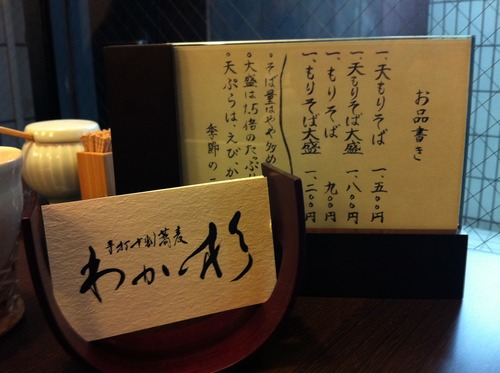 お品書き
一、天もりそば 一、五〇〇円
一、天もりそば大盛 一、八〇〇円
一、もりそば 九〇〇円
一、もりそば大盛 一、二〇〇円
。そば量はやや多め
。大盛は1.5倍のたっぷり
。天ぷらは、えび、か
季節の
手打十割蕎麦
わか杉